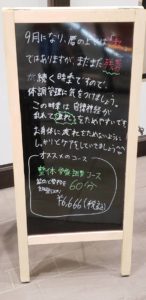 9月になり、暦の上では「秋」
ではありますが、まだまだ残暑
が続く時季ですので、
体調管理に気をつけましょう。
この時季は自律神経が
乱れて疲れをためやすいです
お身体に疲れをためないように
しっかりとケアをしていきましょう
オススメのコース
整体・骨盤調整コース
60分
¥6,666(税込)